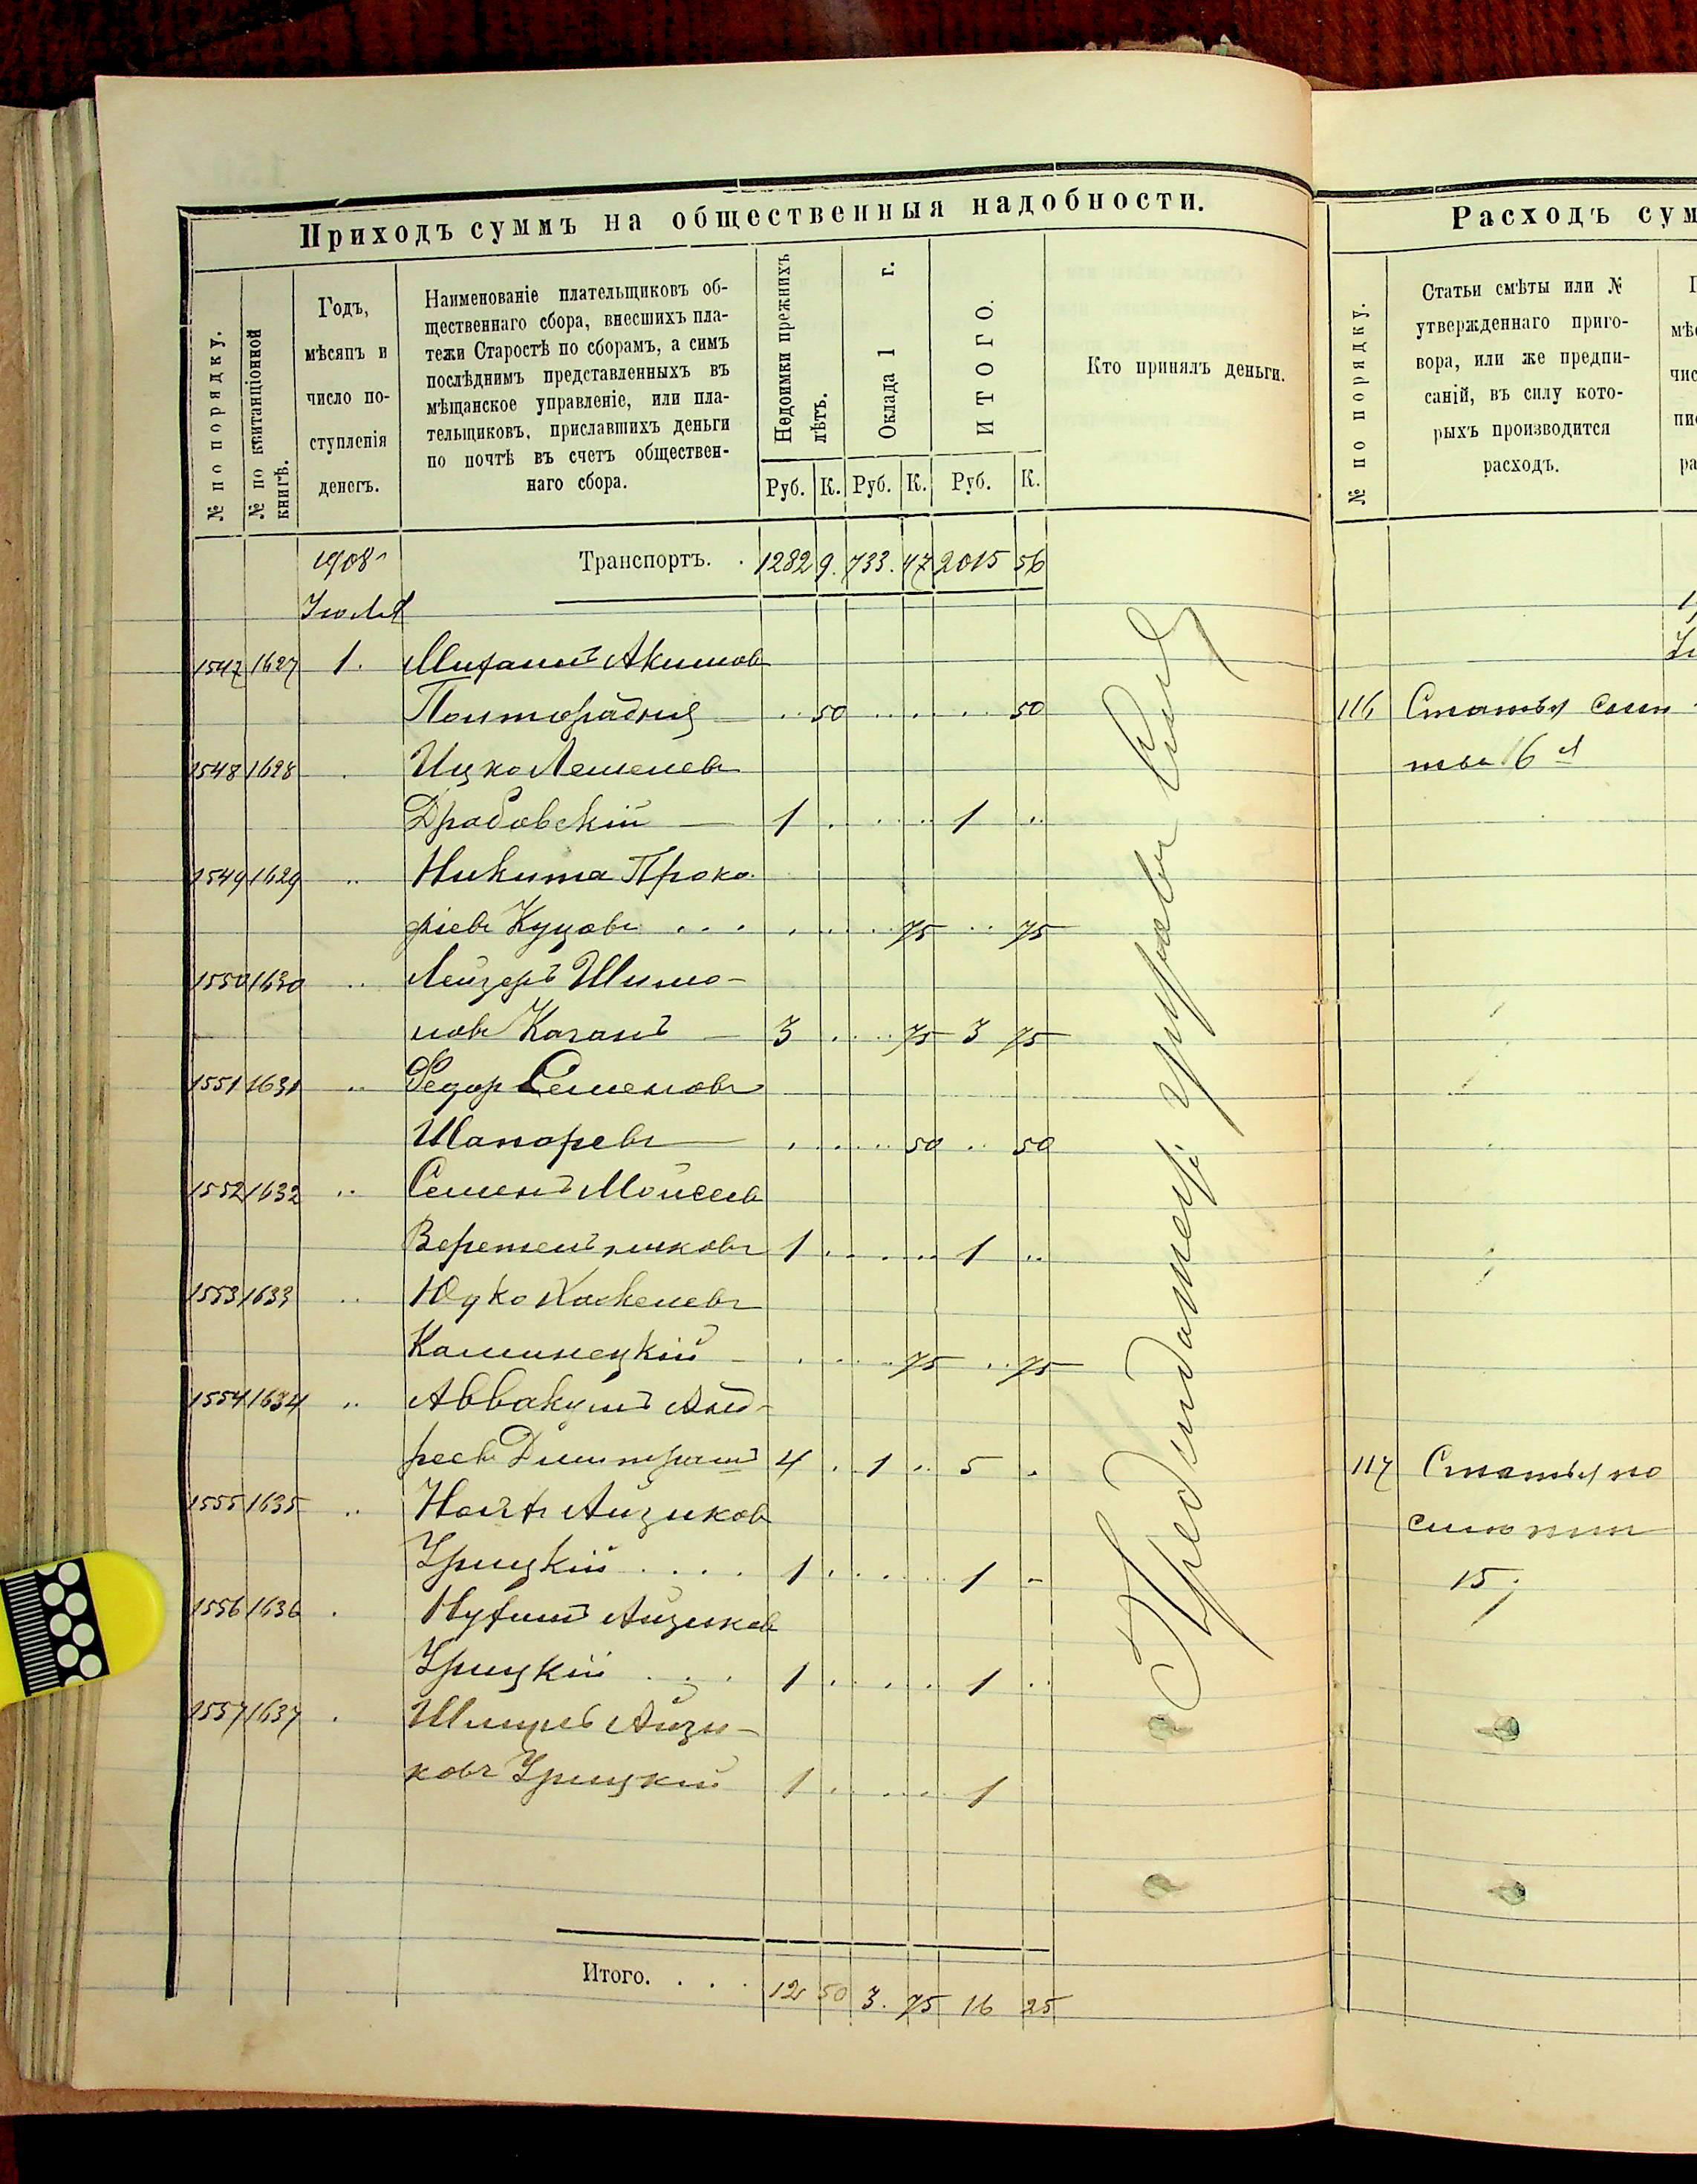 Приходъ суммъ на общественныя надобности.
№ по порядку.
№ по квитанціонной книгѣ.
Годъ,
мѣсяцъ и
число по-
ступленія
денегъ.
Наименованіе плательщиковъ об-
щественнаго сбора, внесшихъ пла-
тежи Старостѣ по сборамъ, а симъ
послѣднимъ представленныхъ въ
мѣщанское управленіе, или пла-
тельщиковъ, приславшихъ деньги
по почтѣ въ счетъ обществен-
наго сбора.
Недоимки прежнихъ лѣтъ.
Оклада 1 г.
ИТОГО.
Кто принялъ деньги.
Руб. К. Руб. К. Руб. К.
1908 Транспортъ. . 1282 9. 733. 47 2015 56
Іюля
1547 1627 1. Михаилъ Акимовъ
.. 50 .. .. .. 50
1548 1628 . Ицко
Драбовскій — 1 . . . .. 1 ..
1549 1629 .. Никита Проко-
фіевъ Куцовъ ... . . . .. 75 .. 75
1550 1630 .. Лейзеръ Шимо-
новъ Каганъ — 3 . . .. 75 3 75
1551 1631 .. Федор Семеновъ
Шапоревъ — . . . .. 50 .. 50
1552 1632 .. Семенъ Моисеевъ
1 . . . .. 1 ..
1553 1633 .. Юдко
Каминецкій — . . . .. 75 .. 75
1554 1634 .. Аввакумъ Анд-
реевъ 4 . 1 .. 5 .
1555 1635 .. Айзиковъ
Урицкій . . . . 1 . . . .. 1 -
1556 1636 . Нухимъ Айзиковъ
Урицкій . . . 1 . . . . 1 ..
1557 1637 . Айзи-
ковъ Урицкій 1 . . . . 1
Итого. . . . 12 50 3. 75 16 25
Расходъ сум
№ по порядку.
Статьи смѣты или №
утвержденнаго приго-
вора, или же предпи-
саній, въ силу кото-
рыхъ производится
расходъ.
116 Статья
6
117 Статья по
15